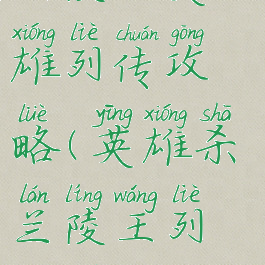 xióng liè chuán gōng
雄列传攻
lüè yīng xióng shā
略(英雄杀
lán líng wáng liè
兰陵王列